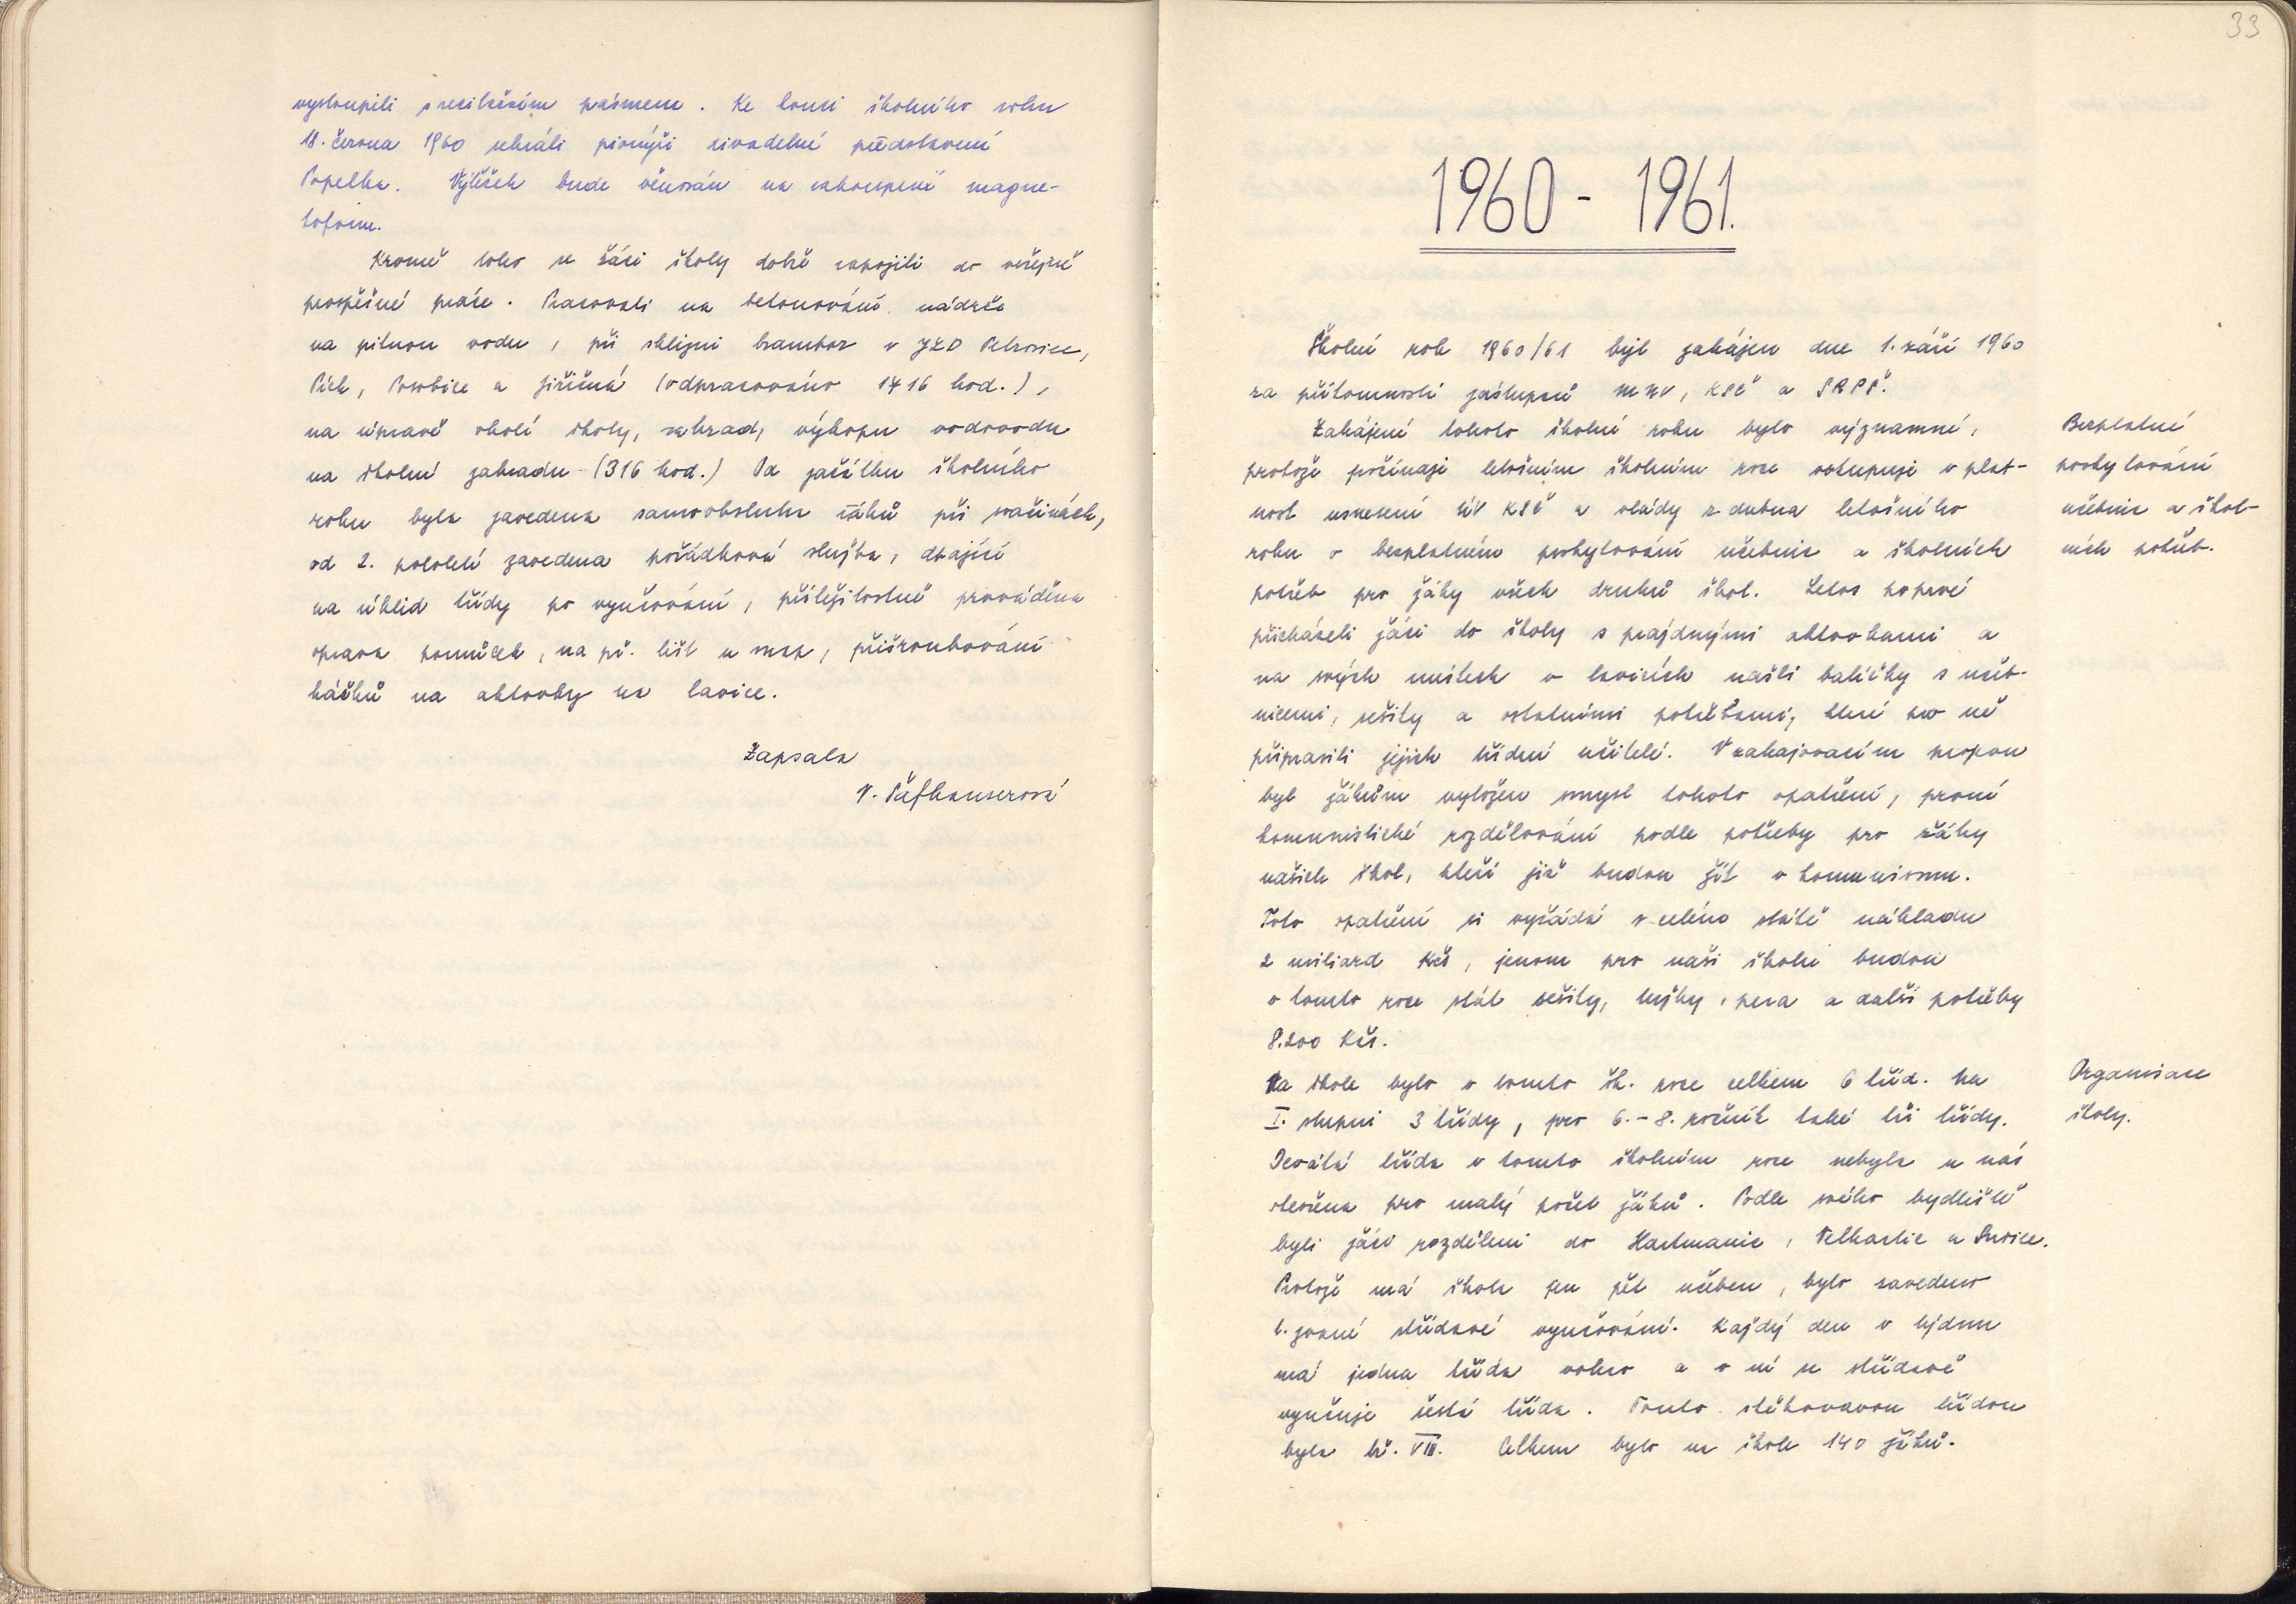 vystoupili s recitačním pásmem. Ke konci školního roku
18. června 1960 sehráli pionýři divadelní představení
Popelka. Výtěžek bude věnován na zakoupení magne-
tofonu.
Kromě toho se žáci školy dobře zapojili do veřejně
prospěšné práce. Pracovali na betonování nádrže
na pitnou vodu, při sklizni brambor v JZD Petrovice,
Pích, Posobice a Jiřičná (odpracováno 1416 hod.),
na úpravě okolí školy, zahrad, výkopu vodovodu
na školní zahradu (316 hod.) Od začátku školního
roku byla zavedena samoobsluha žáků při svačinách,
od 2. pololetí zavedena pořádková služba, dbající
na úklid třídy po vyučování, příležitostně prováděna
oprava pomůcek, na př. lišt u map, přišroubování
háčků na aktovky na lavice.
Zapsala
V.
33
1960 - 1961.
Školní rok 1960/61 byl zahájen dne 1. září 1960
za přítomnosti zástupců MNV, KSČ a SRPŠ.
Zahájení tohoto školní roku bylo významné,
protože počínaje letošním školním roce vstupuje v plat-
nost usnesení ÚV KSČ a vlády z dubna letošního
roku o bezplatném poskytování učebnic a školních
potřeb pro žáky všech druhů škol. Letos poprvé
přicházeli žáci do školy s prázdnými aktovkami a
na svých místech v lavicích našli balíčky s učeb-
nicemi, sešity a ostatními potřebami, které pro ně
připravili jejich třídní učitelé. V zahajovacím projevu
byl žákům vyložen smysl tohoto opatření, první
komunistické rozdělování podle potřeby pro žáky
našich škol, kteří již budou žít v komunismu.
Toto opatření si vyžádá v celém státě nákladu
2 miliard Kčs, jenom pro naši školu budou
v tomto roce stát sešity, tužky, pera a další potřeby
8.200 Kčs.
Na škole bylo v tomto šk. roce celkem 6 tříd. Na
I. stupni 3 třídy, pro 6.-8. ročník také tři třídy.
Devátá třída v tomto školním roce nebyla u nás
otevřena pro malý počet žáků. Podle svého bydliště
byli žáci rozděleni do Hartmanic, Velhartic a Sušice.
Protože má škola jen pět učeben, bylo zavedeno
t. zvané střídavé vyučování. Každý den v týdnu
má jedna třída volno a v ní se střídavě
vyučuje šestá třída. Touto stěhovavou třídou
byla tř. VIII. Celkem bylo na škole 140 žáků.
Bezplatné
poskytování
učebnic a škol-
ních potřeb.
Organisace
školy.